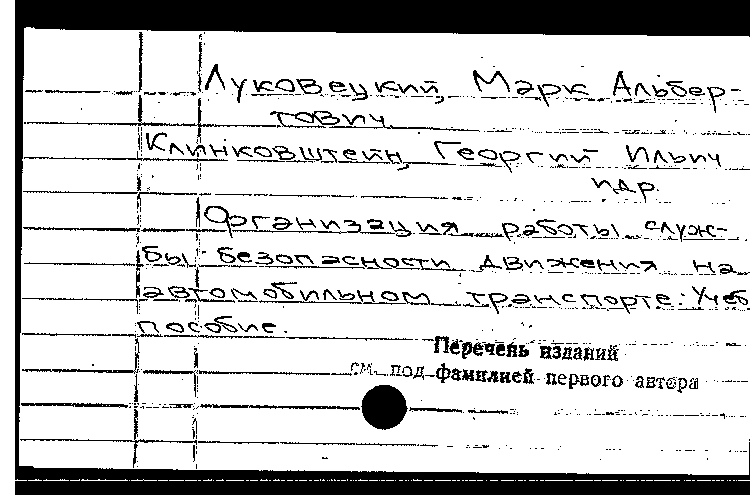 Луковецкий, Марк Альбер-
тович.
Клинковштейн, Георгий Ильич
и др.
Организация работы служ-
бы безопасности движения на
автомобильном транспорте: Учеб
пособие.
Перечень изданий
см. под фамилией первого автора